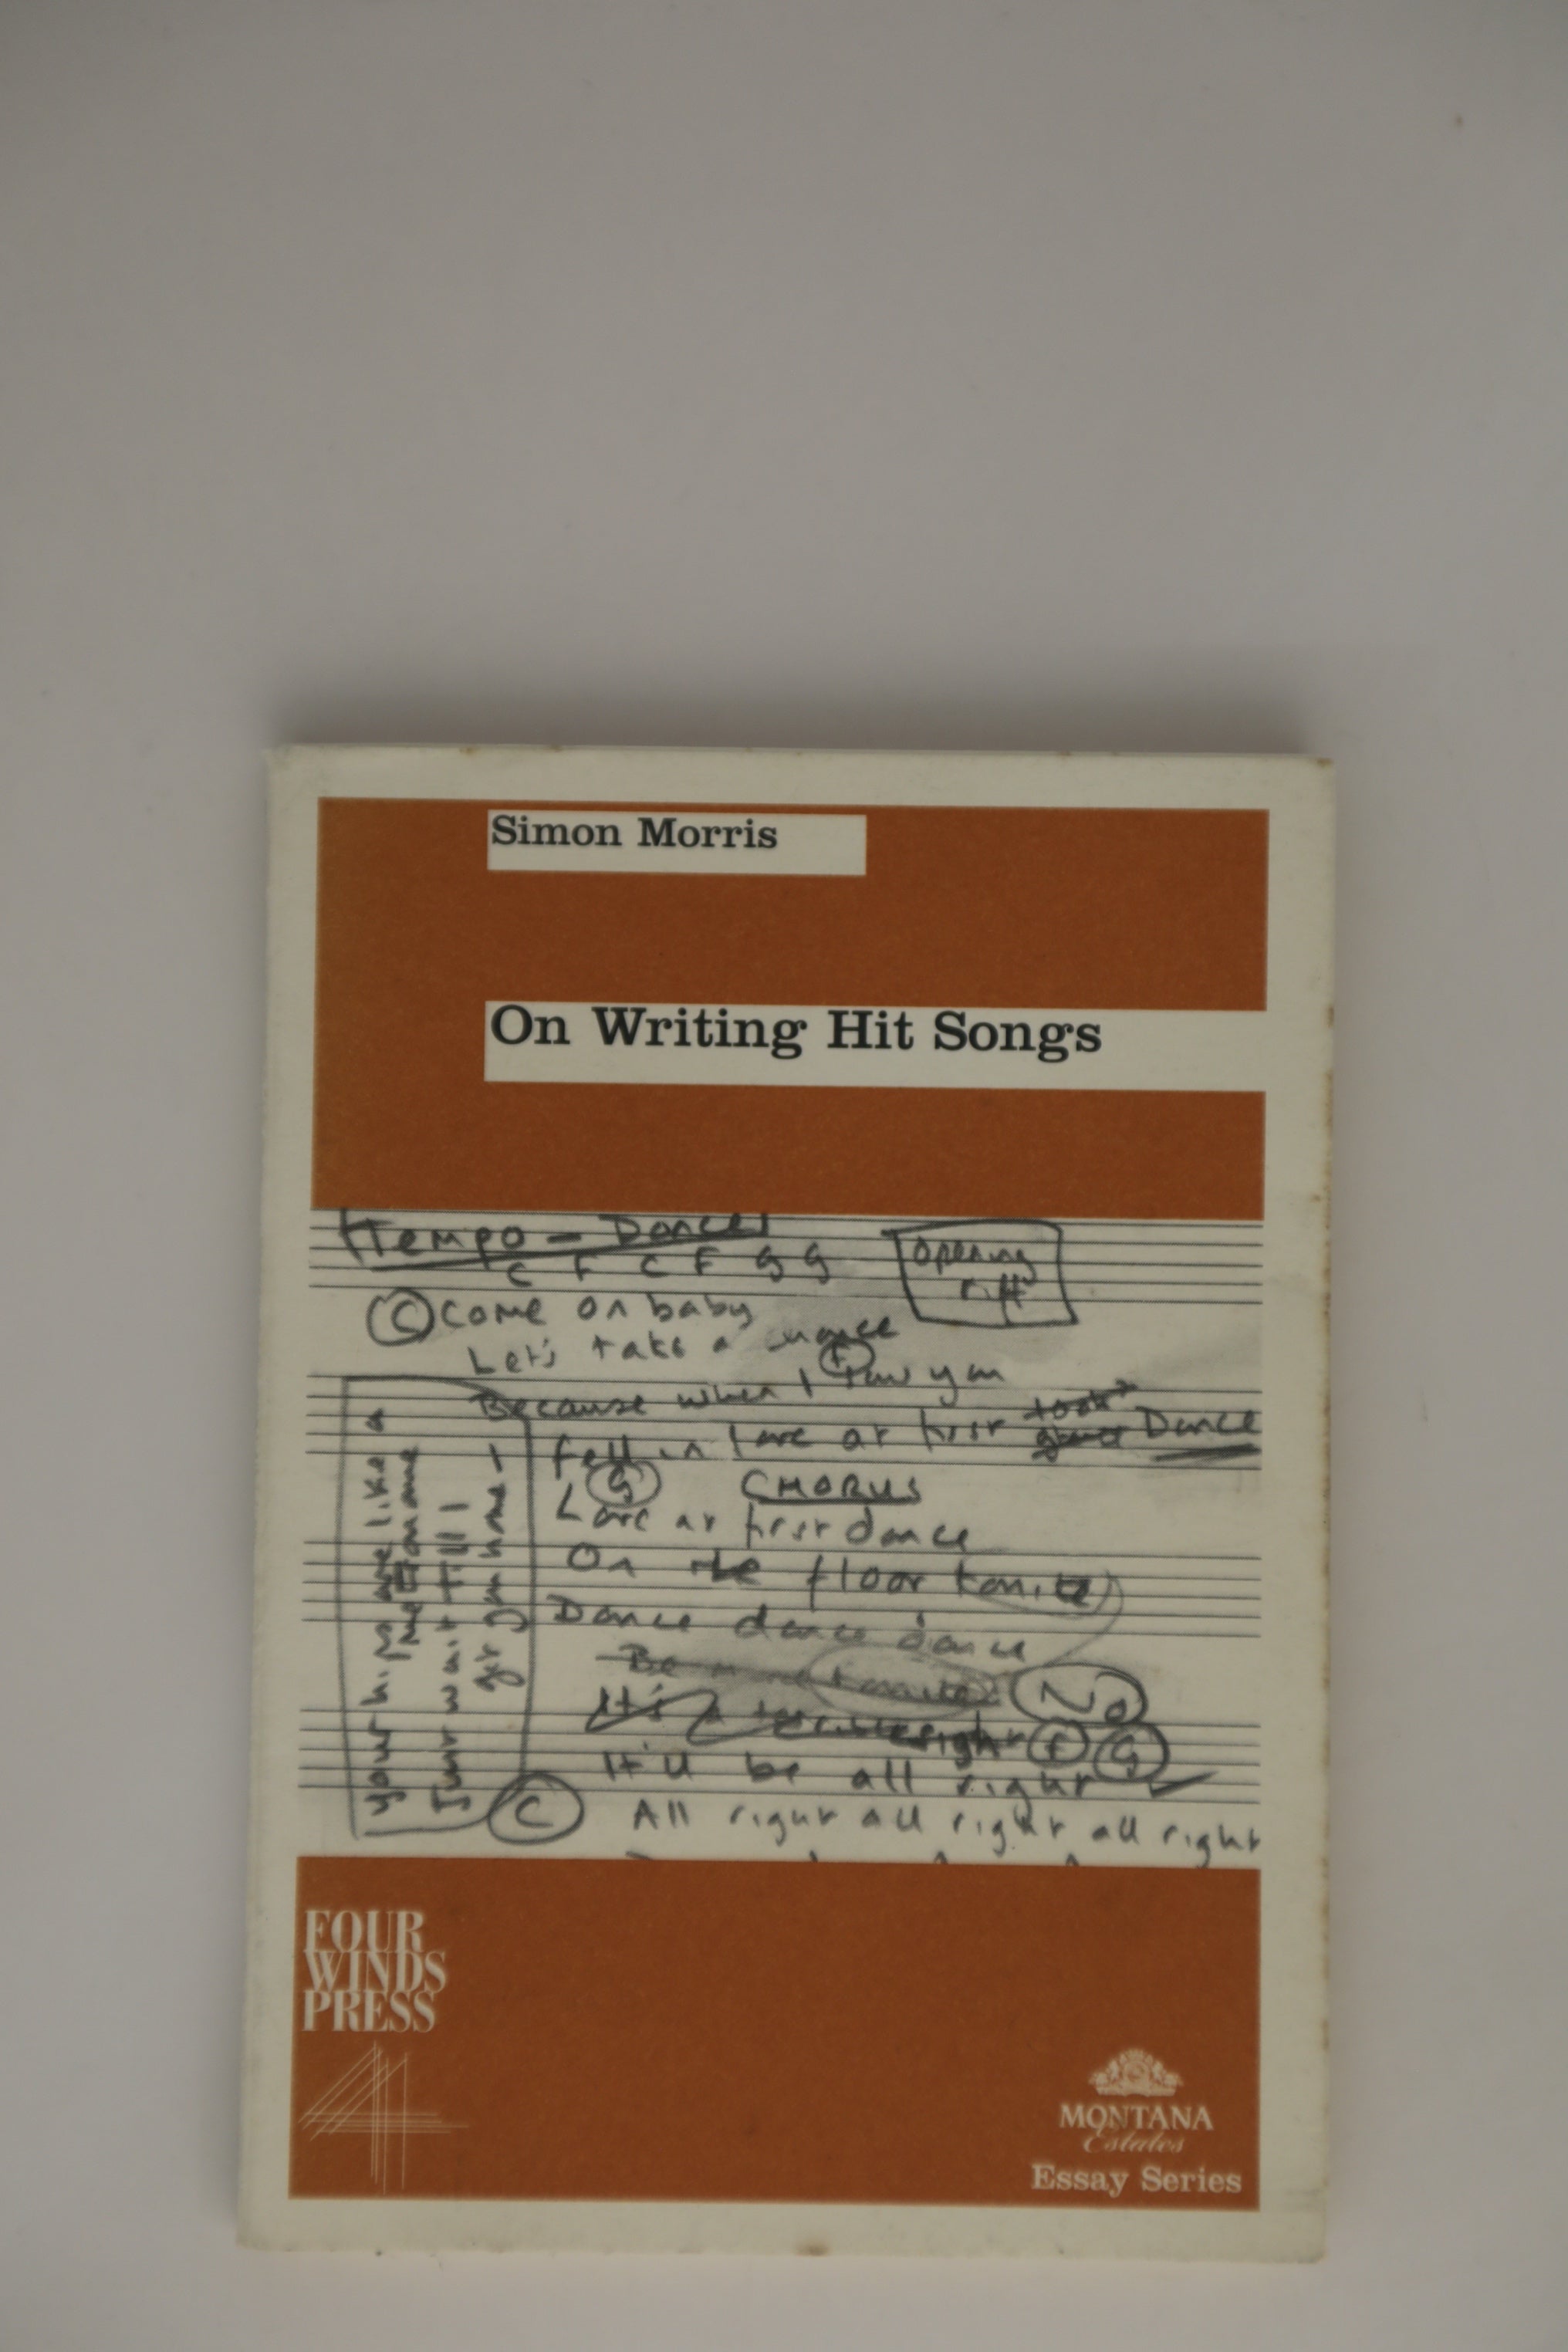 Simon Morris
On Writing Hit Songs
Tempo – Dance
C F C F G G
Opening
riff
C Come on baby
Let's take a chance
F
Because when I saw you
fell in love at first Dance
G CHORUS
Love at first dance
On the floor tonite
Dance dance dance
No
It's a right F G
It'll be all right
C All right all right all right
your hips are like a
metronome
Just wait till I
get you home –
FOUR
WINDS
PRESS
4
MONTANA
Estates
Essay Series